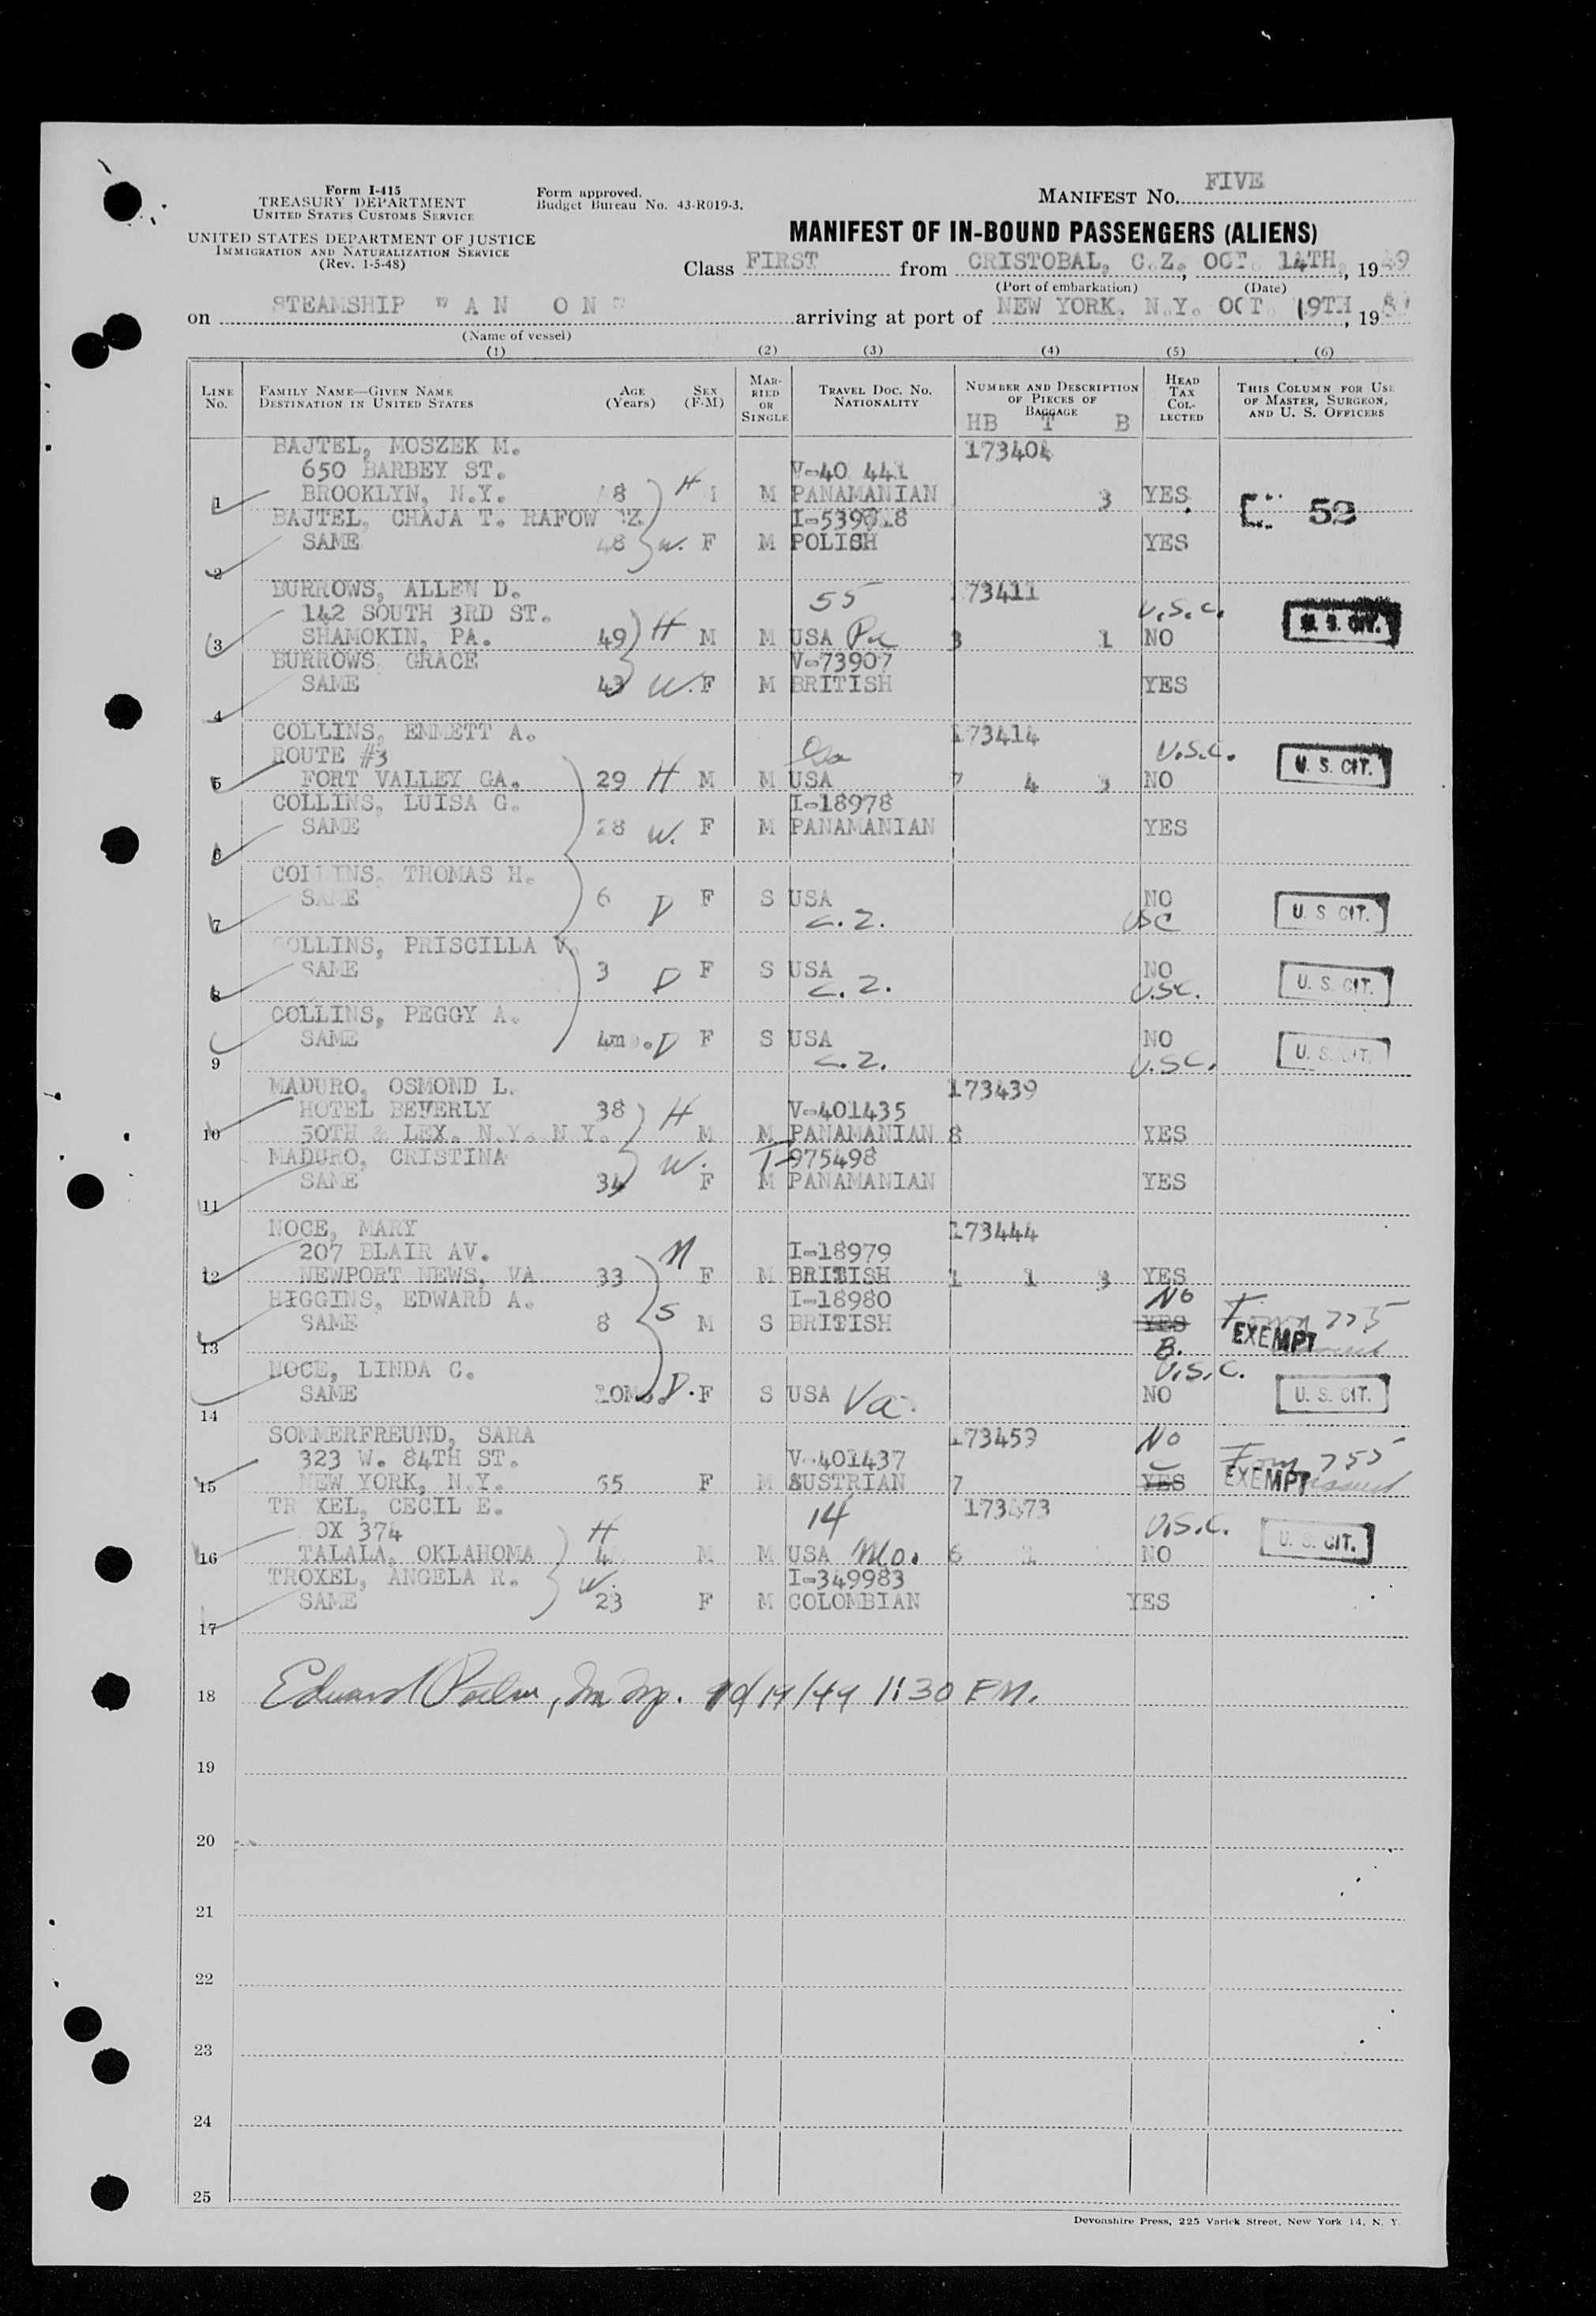 Form I-415
TREASURY DEPARTMENT
UNITED STATES CUSTOMS SERVICE
UNITED STATES DEPARTMENT OF JUSTICE
IMMIGRATION AND NATURALIZATION SERVICE
(Rev. 1-5-48)
Form approved.
Budget Bureau No. 43-R019-3.
MANIFEST NO. FIVE
MANIFEST OF IN-BOUND PASSENGERS (ALIENS)
Class FIRST from CRISTOBAL, C.Z., OCT. 14TH, 1949
(Port of embarkation) (Date)
on STEAMSHIP "A N   O N" arriving at port of NEW YORK, N.Y. OCT. 19TH, 19
(Name of vessel)
(1) (2) (3) (4) (5) (6)
LINE NO. FAMILY NAME—GIVEN NAME DESTINATION IN UNITED STATES AGE (Years) SEX (F-M) MARRIED OR SINGLE TRAVEL DOC. NO. NATIONALITY NUMBER AND DESCRIPTION OF PIECES OF BAGGAGE HEAD TAX COLLECTED THIS COLUMN FOR USE OF MASTER, SURGEON, AND U. S. OFFICERS
HB T B
BAJTEL, MOSZEK M. 173404
650 BARBEY ST. V-40 441
1 BROOKLYN, N.Y. 8 H M PANAMANIAN 3 YES 52
BAJTEL, CHAJA T. RAFOW Z I-539018
2 SAME 48 W. F M POLISH YES
BURROWS, ALLEN D. 55 73411
142 SOUTH 3RD ST. U.S.C.
3 SHAMOKIN, PA. 49 H M M USA Pa 3 1 NO U. S. CIT.
BURROWS GRACE V-73907
4 SAME 43 W. F M BRITISH YES
COLLINS, EMMETT A. 173414
ROUTE #3 U.S.C.
5 FORT VALLEY GA. 29 H M M USA 7 4 3 NO U. S. CIT.
COLLINS, LUISA G. I-18978
6 SAME 28 W. F M PANAMANIAN YES
COLLINS, THOMAS H.
7 SAME 6 D F S USA NO
C.Z. USC U. S. CIT.
COLLINS, PRISCILLA V.
8 SAME 3 D F S USA NO
C.Z. U.SC. U. S. CIT.
COLLINS, PEGGY A.
9 SAME 4m . D F S USA NO
C.Z. U.SC. U. S. CIT.
MADURO, OSMOND L. 173439
HOTEL BEVERLY 38 H V-401435
10 50TH & LEX. N.Y. N.Y. M M PANAMANIAN 8 YES
MADURO, CRISTINA W. I-975498
11 SAME 34 F M PANAMANIAN YES
NOCE, MARY 173444
207 BLAIR AV. M I-18979
12 NEWPORT NEWS, VA 33 F M BRITISH 1 1 3 YES
HIGGINS, EDWARD A. I-18980 No
13 SAME 8 S M S BRITISH YES B. EXEMPT
NOCE, LINDA C. U.S.C.
14 SAME 10M. D. F S USA Va. NO U. S. CIT.
SOMMERFREUND, SARA 173459 No
323 W. 84TH ST. V-401437
15 NEW YORK, N.Y. 55 F M AUSTRIAN 7 YES EXEMPT issued
TR XEL, CECIL E. 14 173473
OX 374 H U.S.C.
16 TALALA, OKLAHOMA 4 M M USA Mo. 6 NO U. S. CIT.
TROXEL, ANGELA R. W. I-349983
17 SAME 23 F M COLOMBIAN YES
18 Edward 10/19/49 1:30 P.M.
19
20
21
22
23
24
25
Devonshire Press, 225 Varick Street, New York 14, N. Y.